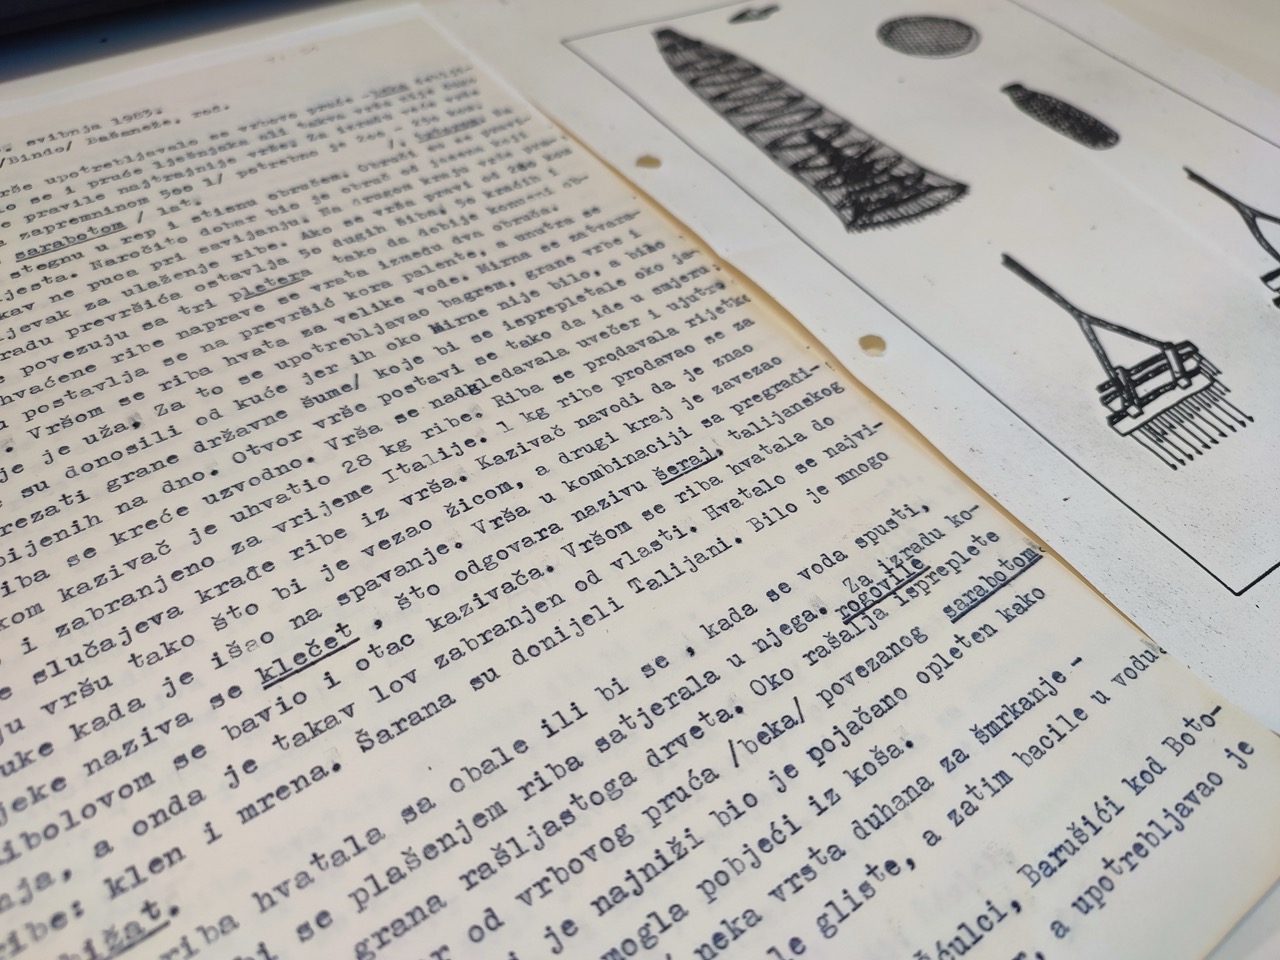 . svibnja 1983.
/Bindo/ Bažaneže, rođ.
rše upotrebljavalo se vrbovo pruće
lo se i pruće lješnjaka ali takva vrša nije bila
e pravile najtrajnije vrše. Za izradu veće vrše
zapremninom 500 l/ potrebno je 200 - 250 kom.
sarabotom / lat.
stegnu u rep i stisnu obručem. Obruči
jesta. Naročito dobar bio je obruč od jasena koji
kav ne puca pri savijanju. Na drugom kraju vrše pra-
ljevak za ulaženje ribe. Ako se vrša pravi od 280 kom
radu prevršića ostavlja 50 dugih šiba. 50 kraćih i
e povezuju sa tri pletera tako da dobije konusni ob-
hvaćene ribe naprave se vrata između dva obruča.
postavlja se na prevršić kora palente, a unutra se
. Vršom se riba hvata za velike vode. Mirna se zatvara-
je je uža. Za to se upotrebljavao bagrem, grane vrbe i
su donosili od kuće jer ih oko Mirne nije bilo, a bilo
rezati grane državne šume/ koje bi se isprepletale oko ja-
bijenih na dno. Otvor vrše postavi se tako da ide u smjeru,
iba se kreće uzvodno. Vrša se nadgledavala uvečer i ujutro
kom kazivač je uhvatio 28 kg ribe. Riba se prodavala rijetko
i zabranjeno za vrijeme Italije. 1 kg ribe prodavao se za
e slučajeva krađe ribe iz vrša. Kazivač navodi da je znao
ju vršu tako što bi je vezao žicom, a drugi kraj je zavezao
uke kada je išao na spavanje. Vrša u kombinaciji sa pregrađi-
jeke naziva se klečet , što odgovara nazivu šeraj, talijanskog
ibolovom se bavio i otac kazivača. Vršom se riba hvatala do
nja, a onda je takav lov zabranjen od vlasti. Hvatalo se najvi-
ribe: klen i mrena. Šarana su donijeli Talijani. Bilo je mnogo
bižat.
riba hvatala sa obale ili bi se , kada se voda spusti,
bi se plašenjem riba satjerala u njega. Za izradu ko-
grana rašljastoga drveta. Oko rašalja isprepletе rogovile
or od vrbovog pruća /beka/ povezanog sarabotom.
i je najniži bio je pojačano opleten kako
mogla pobjeći iz koša.
neka vrsta duhana za šmrkanje -
le gliste, a zatim bacile u vodu.
šćulci, Barušići kod Boto-
r, a upotrebljavao je